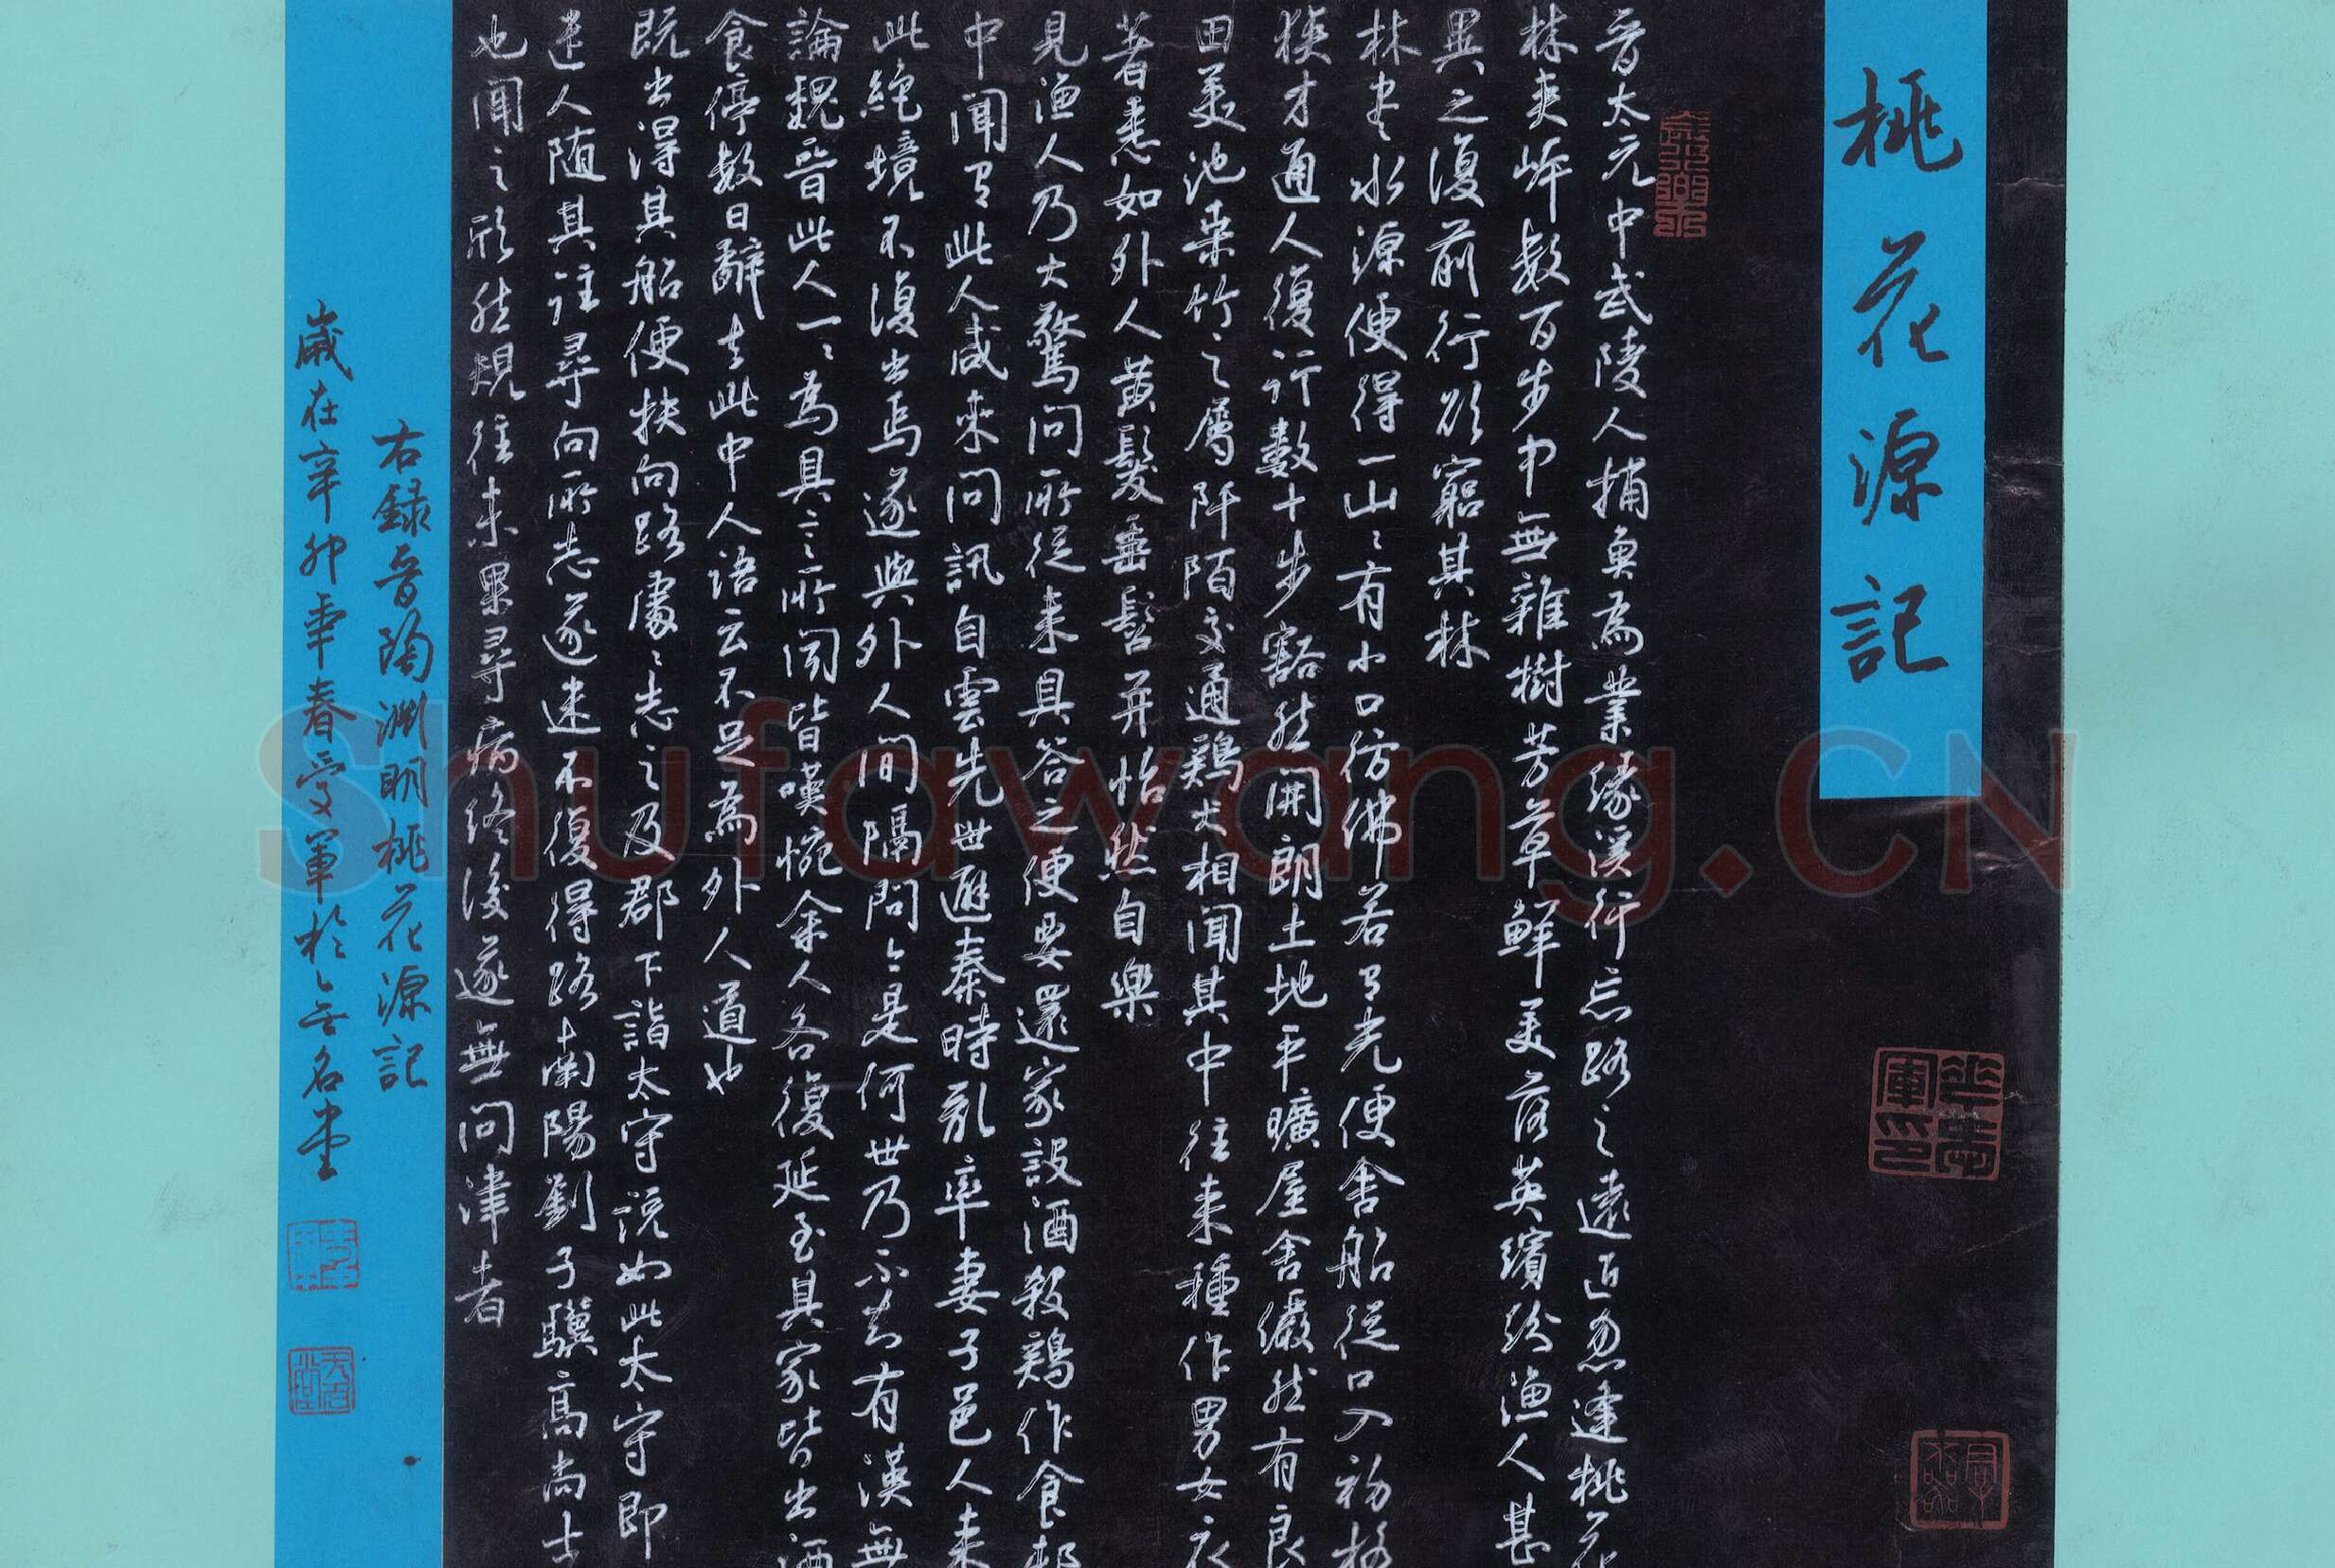 桃花源記
晉太元中武陵人捕魚為業緣溪行忘路之遠近忽逢桃花
林夾岸數百步中無雜樹芳草鮮美落英繽紛漁人甚
異之復前行欲窮其林
林盡水源便得一山〻有小口彷彿若有光便舍船從口入初極
狹才通人復行數十步豁然開朗土地平曠屋舍儼然有良
田美池桑竹之屬阡陌交通鷄犬相聞其中往來種作男女衣
著悉如外人黃髮垂髫并怡然自樂
見漁人乃大驚問所從来具答之便要還家設酒殺鷄作食村
中聞有此人咸來問訊自雲先世避秦時亂率妻子邑人来
此絕境不復出焉遂與外人間隔問〻是何世乃不知有漢無
論魏晉此人一〻為具言所聞皆嘆惋余人各復延至其家皆出酒
食停數日辭去此中人語云不足為外人道也
既出得其船便扶向路處〻志之及郡下詣太守說如此太守即
遣人隨其往尋向所志遂迷不復得路南陽劉子驥高尚士
也聞之欣然規往未果尋病終後遂無問津者
右録晉陶淵明桃花源記
歲在辛卯年春受軍於〻無名堂
Shufawang.CN